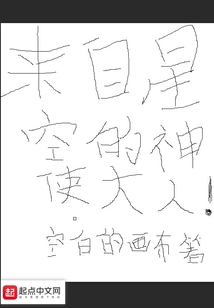 来自星
空的神
使大人
空白的画布著
起点中文网